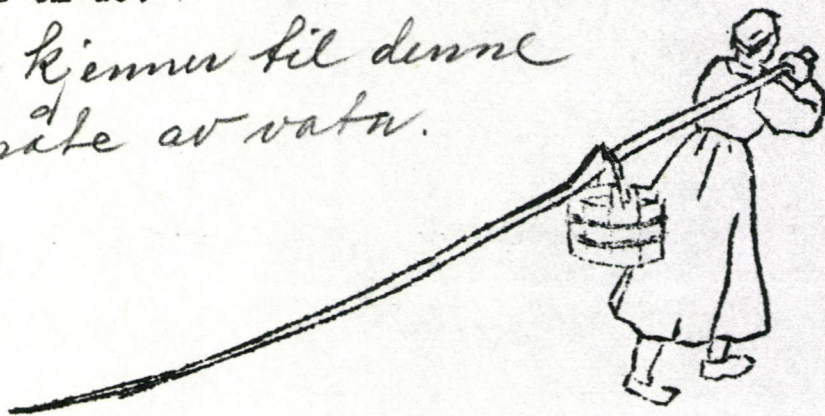 kjenner til denne
av vatn.